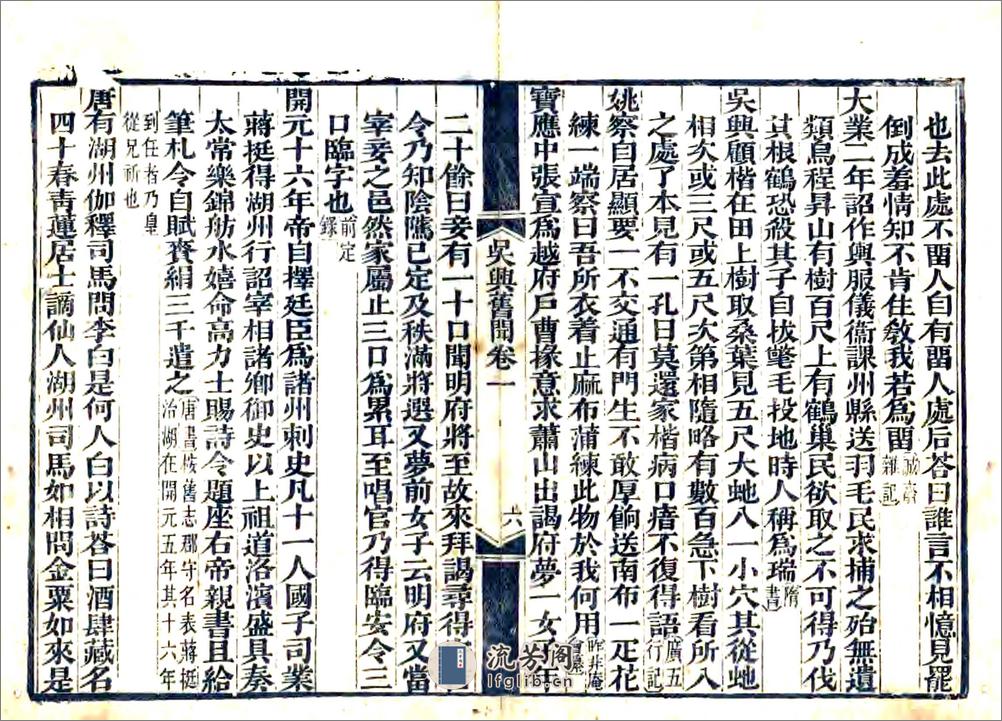 也去此處不畱人自有畱人處后荅曰誰言不相憶見罷
倒成羞情知不肯住敎我若爲畱誠齋雜記
大業二年詔作輿服儀衞課州縣送羽毛民求捕之殆無遺
類烏程昇山有樹百尺上有鶴巢民欲取之不可得乃伐
其根鶴恐殺其子自拔氅毛投地時人稱爲瑞隋書
吳興顧楷在田上樹取桑葉見五尺大虵入一小穴其從虵
相次或三尺或五尺次第相隨略有數百急下樹看所入
之處了本見有一孔日莫還家楷病口瘖不復得語廣五行記
姚察自居顯要一不交通有門生不敢厚餉送南布一疋花
練一端察曰吾所衣着止麻布蒲練此物於我何用昨非庵
寶應中張宣爲越府戶曹掾意求蕭山出謁府夢一女子年
吳興舊聞卷一
六
二十餘曰妾有一十口聞明府將至故來拜謁尋得
令乃知陰隲已定及秩滿將選又夢前女子云明府又當
宰妾之邑然家屬止三口爲累耳至唱官乃得臨安令三
口臨字也前定錄
開元十六年帝自擇廷臣爲諸州刺史凡十一人國子司業
蔣挺得湖州行詔宰相諸御御史以上祖道洛濱盛具奏
太常樂錦舫水嬉命高力士賜詩令題座右帝親書且給
筆札令自賦賚絹三千遣之唐書桉舊志郡守名表蔣挺治湖在開元五年其十六年
到任者乃皇從兄祈也
唐有湖州伽釋司馬問李白是何人白以詩荅曰酒肆藏名
四十春靑蓮居士謫仙人湖州司馬如相問金粟如來是
流芳閣
lfglib.cn